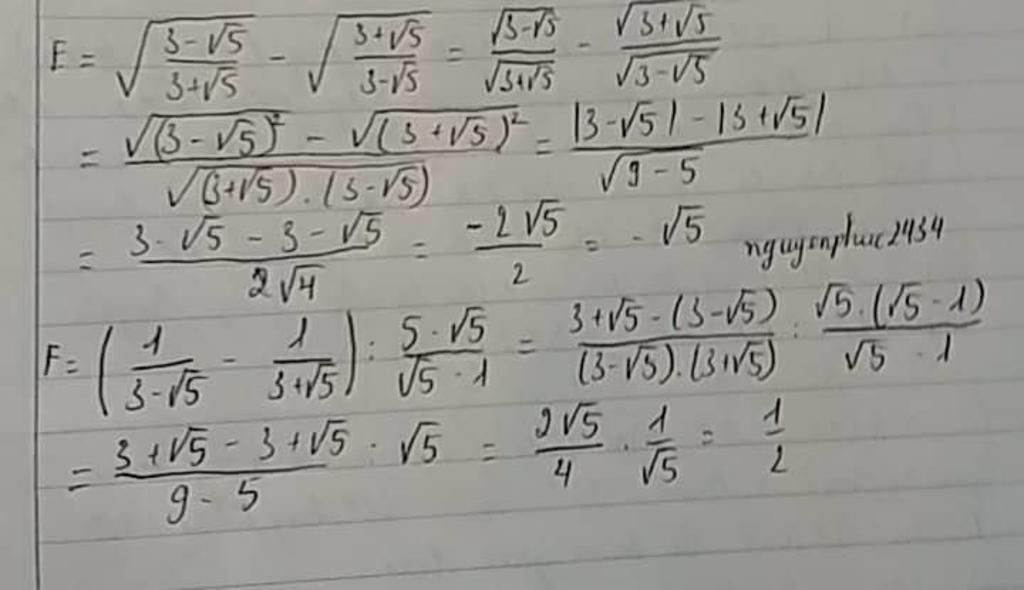 E = √((3-√5)/(3+√5)) - √((3+√5)/(3-√5)) = √(3-√5)/√(3+√5) - √(3+√5)/√(3-√5)
= (√(3-√5)² - √(3+√5)²)/√((3+√5).(3-√5)) = (|3-√5| - |3+√5|)/√(9-5)
= (3-√5-3-√5)/(2√4) = (-2√5)/2 = -√5 nguyenphuc2434
F = (1/(3-√5) - 1/(3+√5)) : (5-√5)/(√5-1) = (3+√5-(3-√5))/((3-√5).(3+√5)) : (√5.(√5-1))/(√5-1)
= (3+√5-3+√5)/(9-5) : √5 = (2√5)/4 . 1/√5 = 1/2